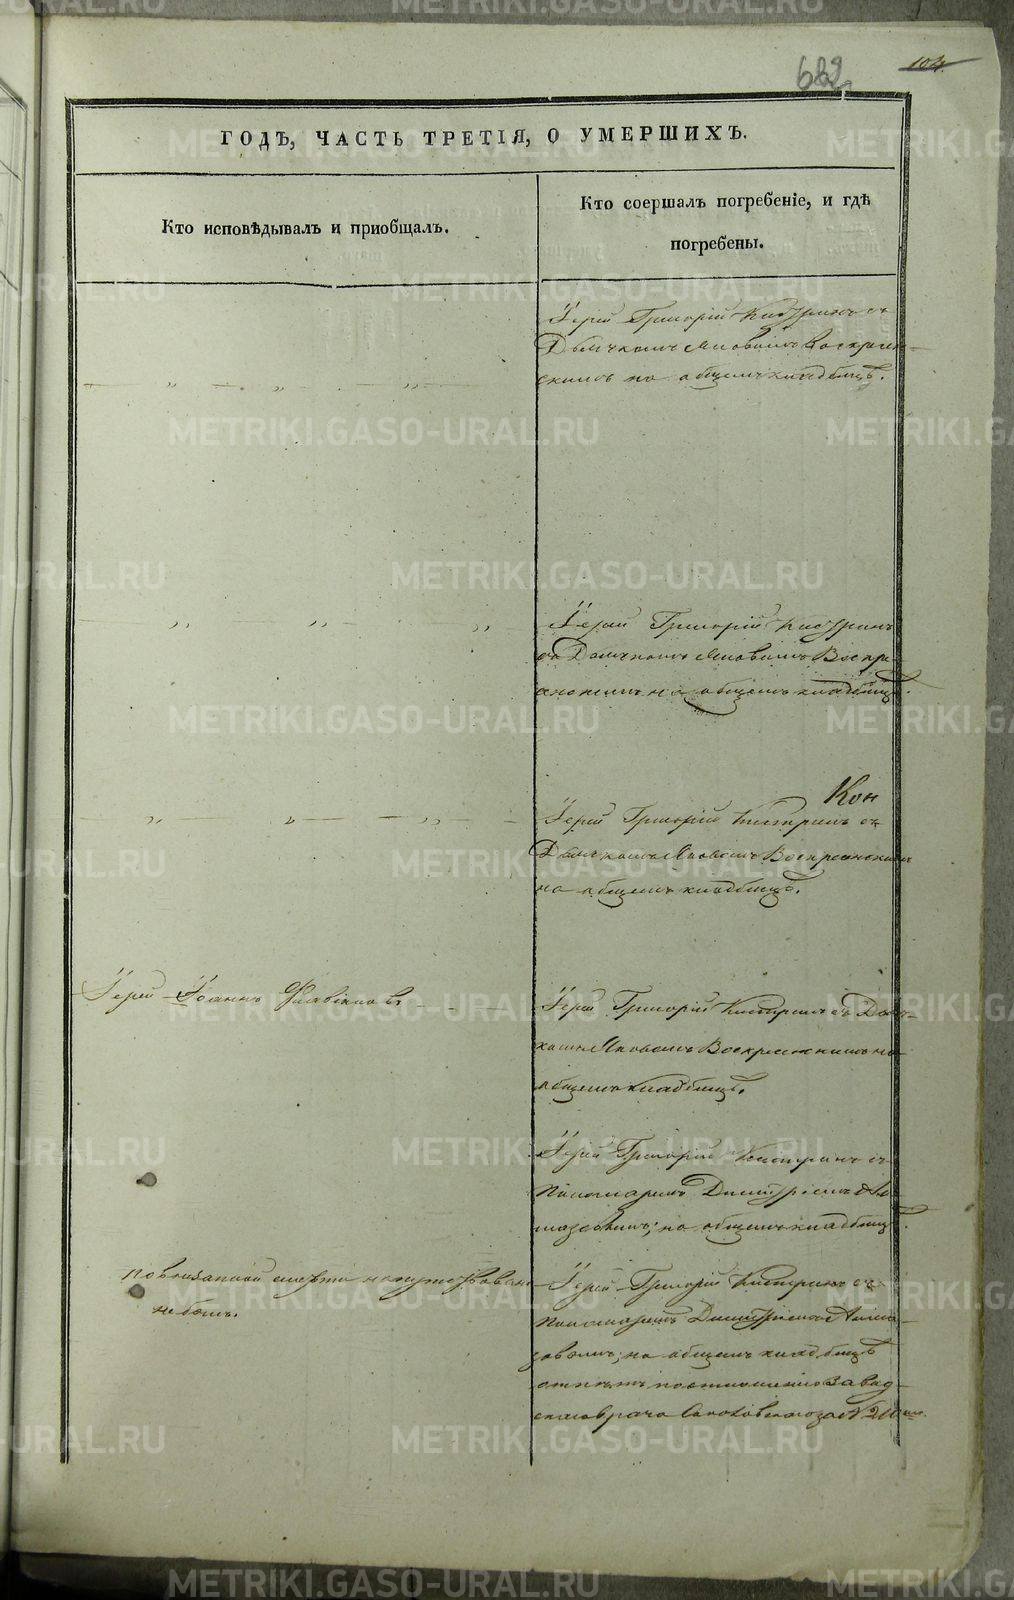 682
104
ГОДЪ, ЧАСТЬ ТРЕТІЯ, О УМЕРШИХЪ.
Кто исповѣдывалъ и пріобщалъ.
Кто соершалъ погребеніе, и гдѣ
погребены.
Іерей Григорій Кистринъ съ
Дьячкомъ Яковомъ Воскресен-
скимъ на общемъ кладбищѣ.
Іерей Григорій Кистринъ
съ Дьячкомъ Яковомъ Воскре-
на общемъ кладбищѣ.
Кон
Іерей Григорій Кистринъ съ
Дьячкомъ Яковомъ Воскресенскимъ
на общемъ кладбищѣ.
Іерей Іоаннъ Флавіановъ
Іерей Григорій Кистринъ съ Дьяч-
комъ Яковомъ Воскресенскимъ на
общемъ кладбищѣ.
Іерей Григорій Кистринъ съ
Пономаремъ Димитріемъ Ал-
мазовымъ; на общемъ кладбищѣ.
По внезапной смерти
не былъ.
Іерей Григорій Кистринъ съ
Пономаремъ Димитріемъ Алма-
зовымъ; на общемъ кладбищѣ
Завод-
скаго врача за № 210
METRIKI.GASO-URAL.RU